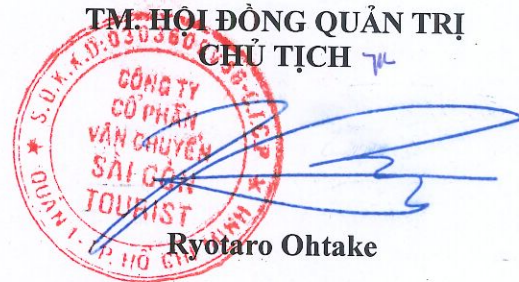 TM. HỘI ĐỒNG QUẢN TRỊ
CHỦ TỊCH
CÔNG TY
CỔ PHẦN
VẬN CHUYỂN
SÀI GÒN
TOURIST
QUẬN 1 - TP. HỒ CHÍ MINH
Ryotaro Ohtake